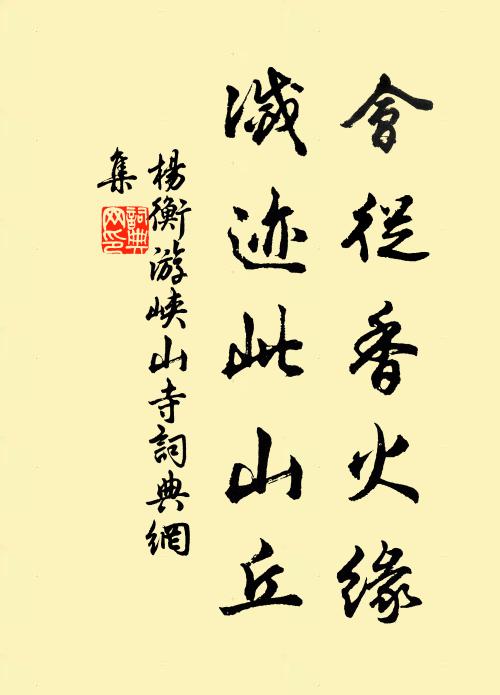 會從香火緣
滅迹此山丘
楊衡游峽山寺詞典網
集
詞典
网印